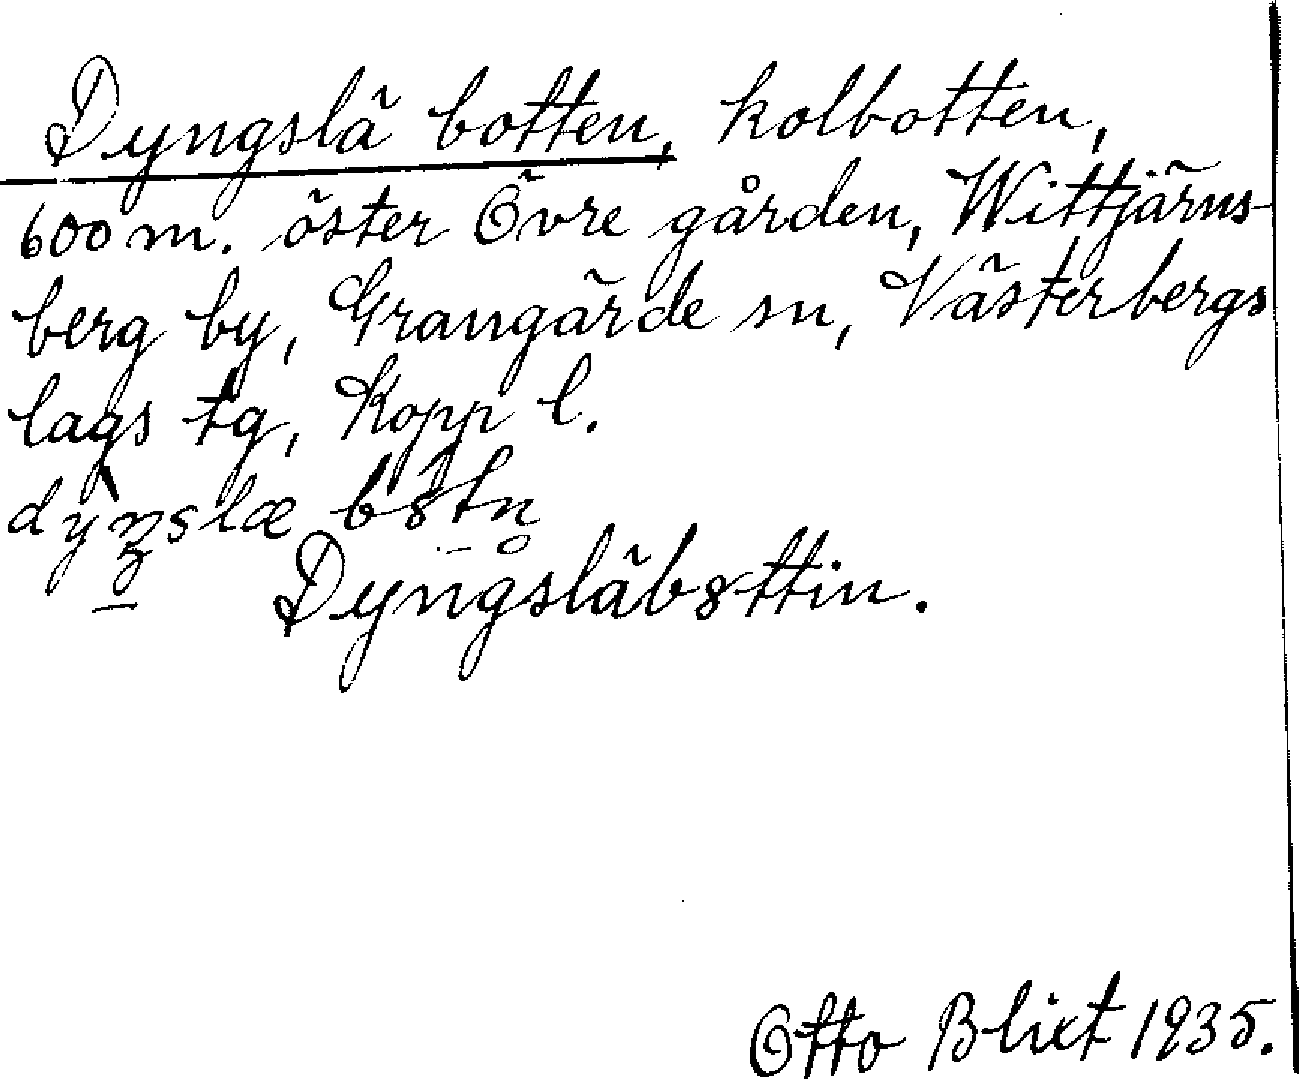 Dyngslä botten, kolbotten,
600 m. öster Övre gården, Wittjärns-
berg by, Grangärde sn, Västerbergs
lags tg, Kopp l.
Dyngsläb8ttin.
Otto Blixt 1935.